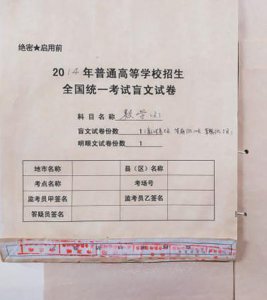 绝密★启用前
2014年普通高等学校招生
全国统一考试盲文试卷
科目名称 数学
盲文试卷份数 1
明眼文试卷份数 1
地市名称 县（区）名称
考点名称 考场号
监考员甲签名 监考员乙签名
答疑员签名